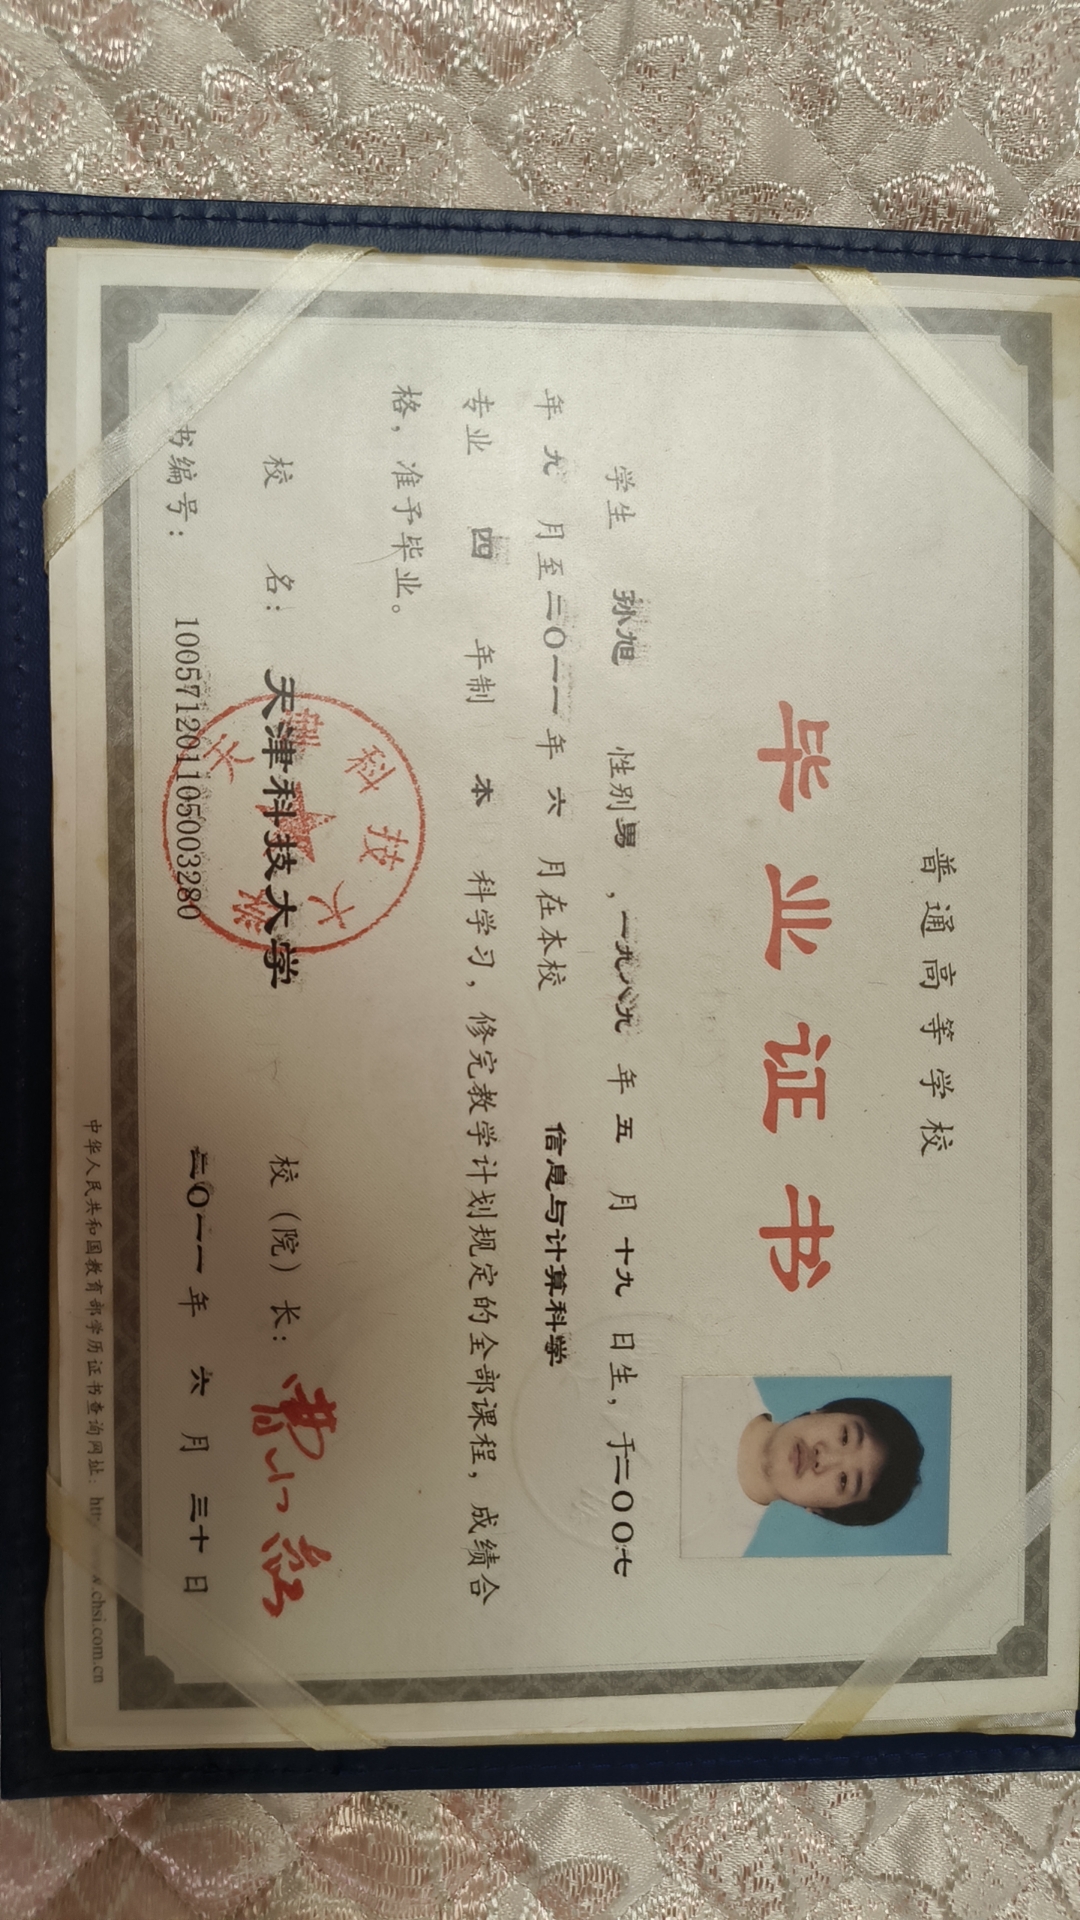 普通高等学校
毕业证书
学生 孙旭 性别男，一九八九年五月十九日生，于二〇〇七
年九月至二〇一一年六月在本校 信息与计算科学
专业 四年制 本科学习，修完教学计划规定的全部课程，成绩合
格，准予毕业。
校 名：天津科技大学 校（院）长：
书编号：100571201105003280 二〇一一年六月三十日
中华人民共和国教育部学历证书查询网址：http w.chsi.com.cn